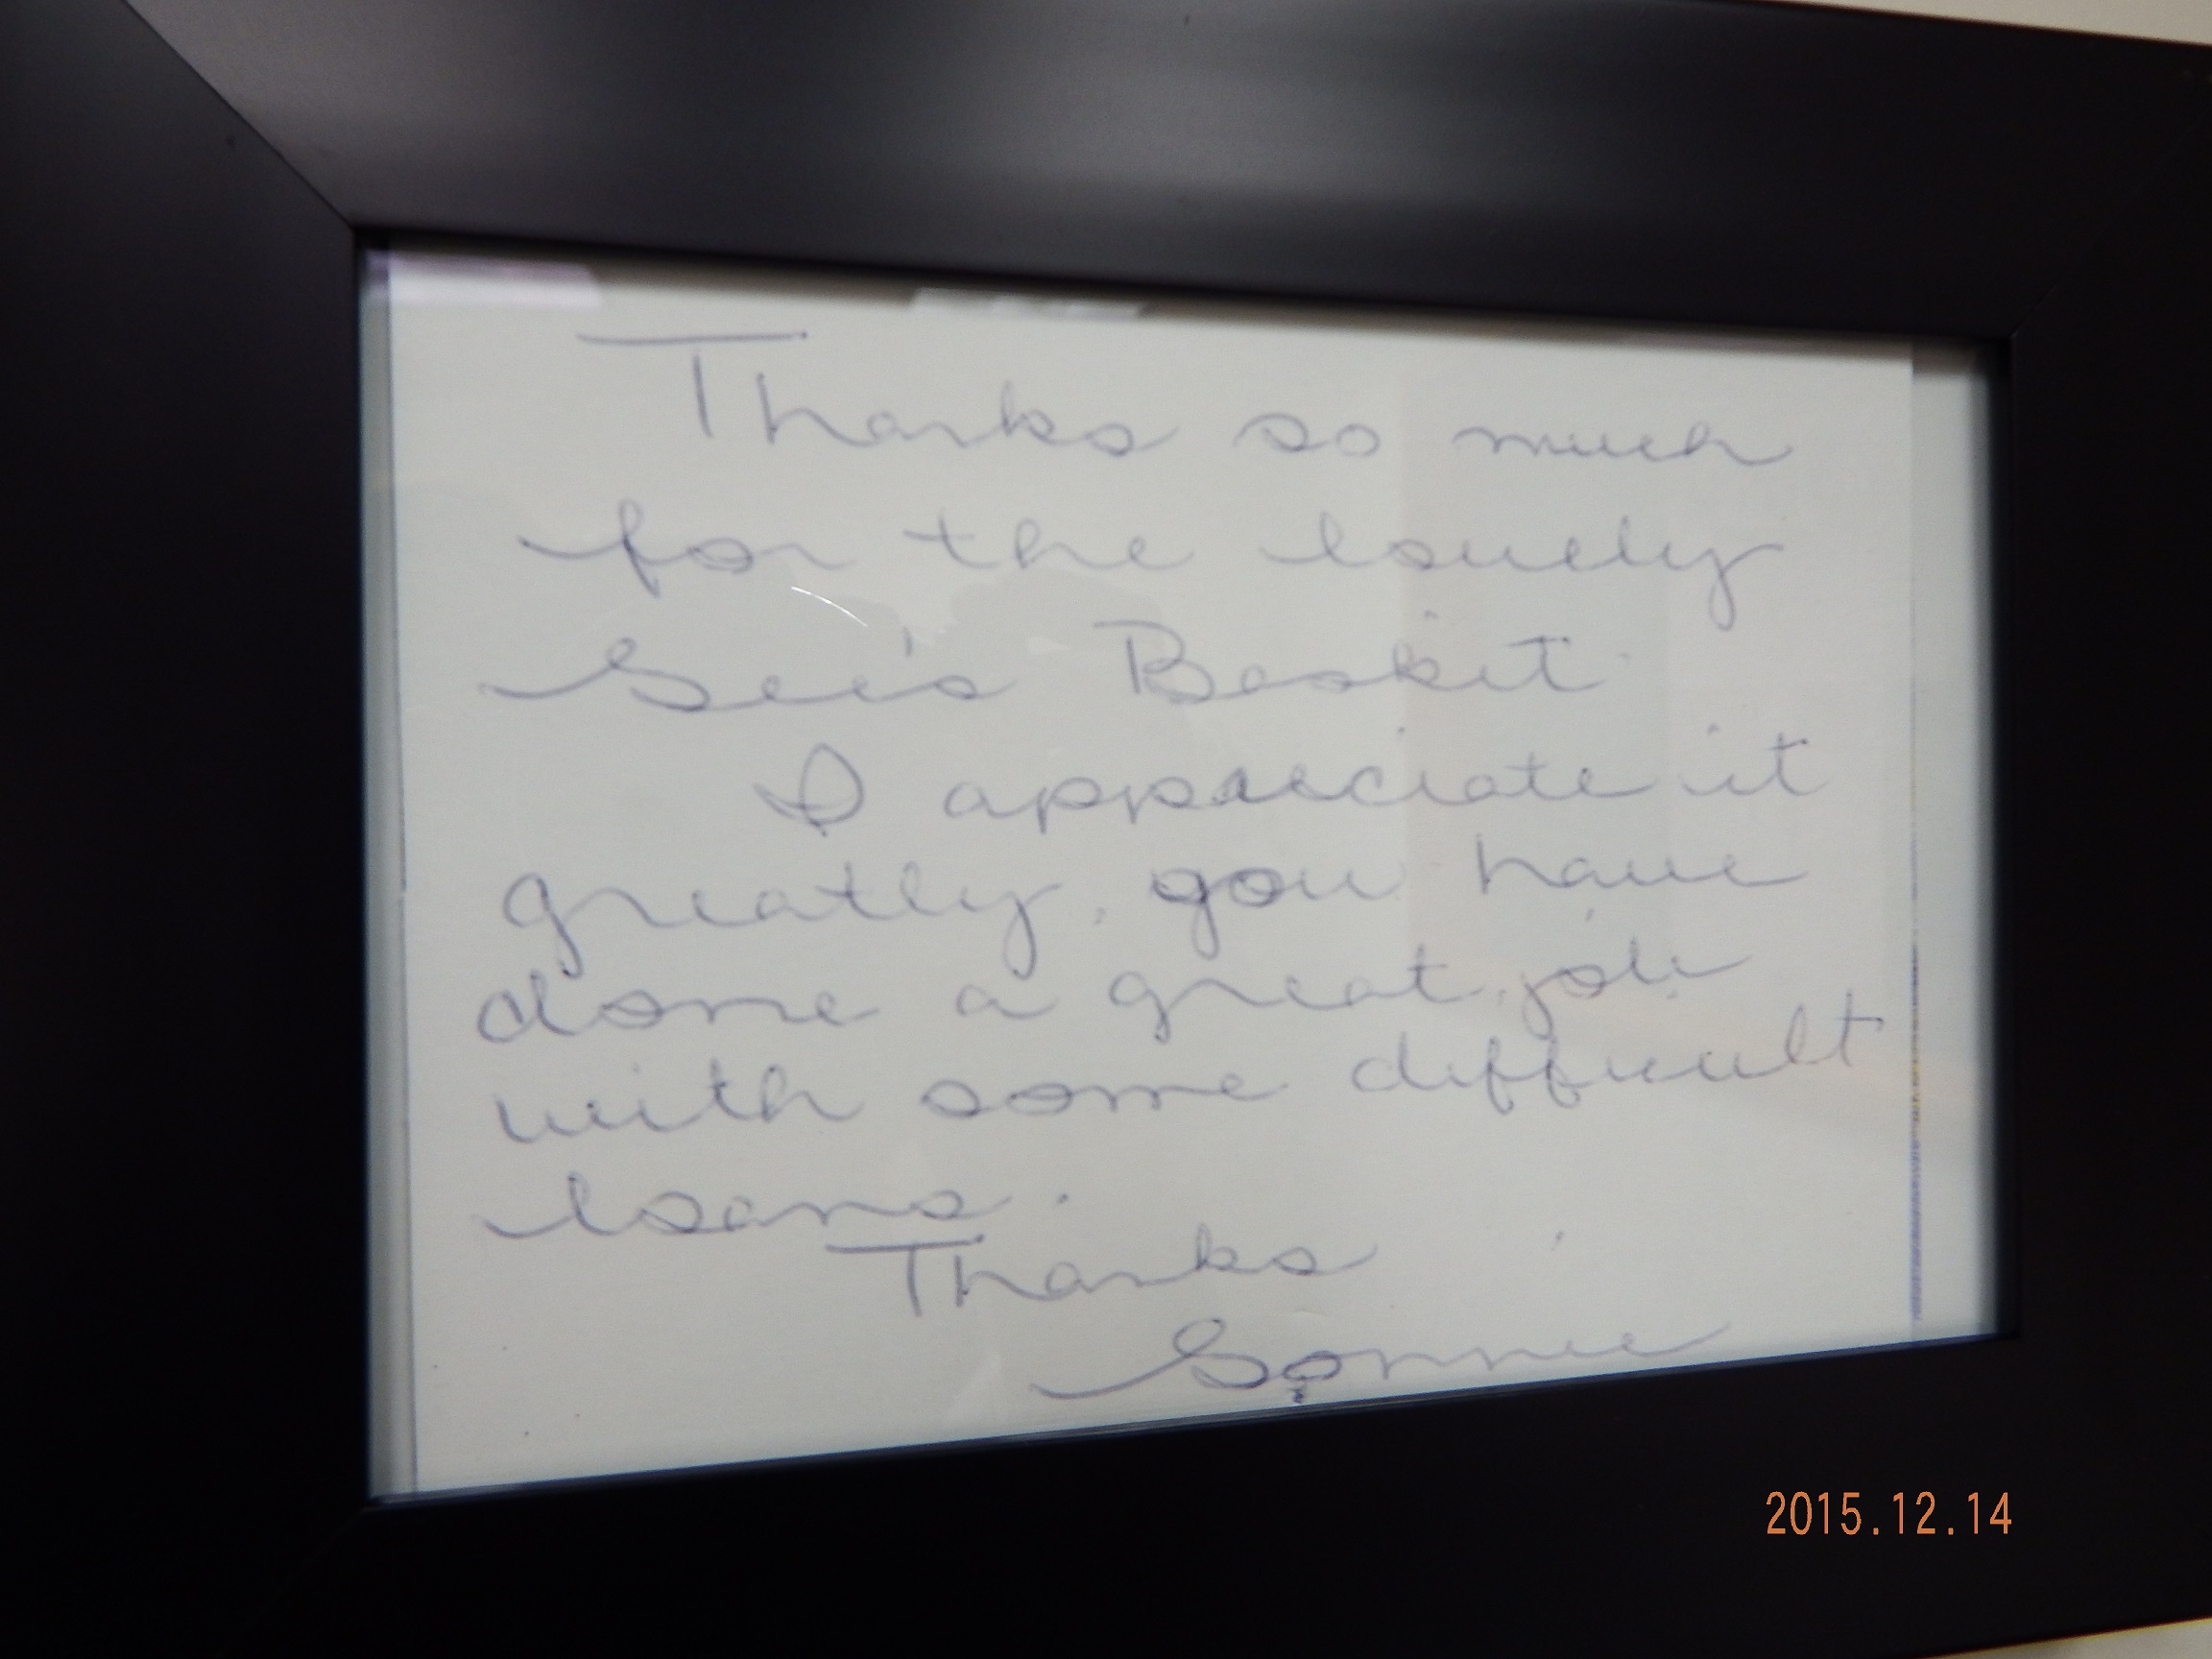 Thanks so much
for the lovely
See's Baskit
I appreciate it
greatly. you have
done a great job
with some difficult
loans.
Thanks
Sonnie
2015.12.14